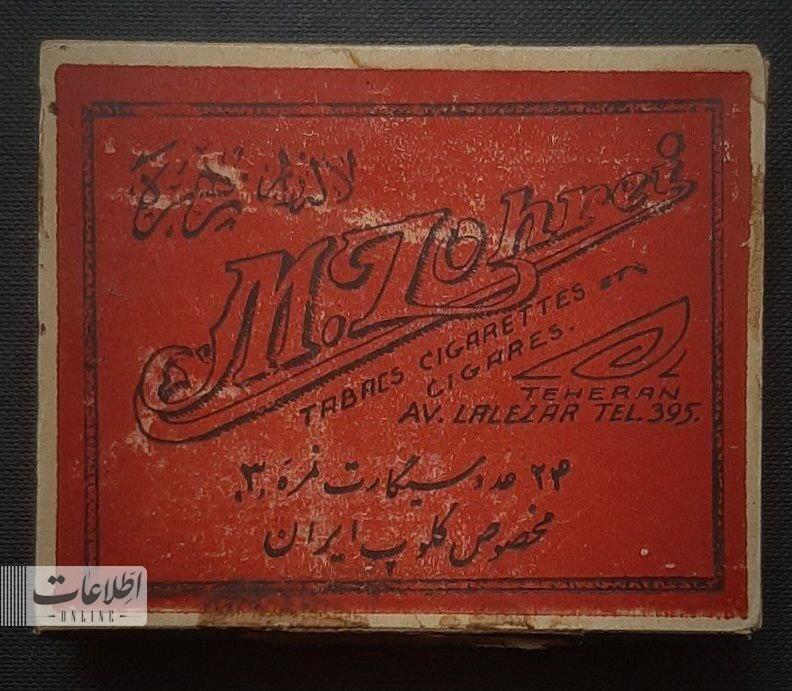 لاله‌زار زهره
M. Zohrei
TABACS CIGARETTES ET
CIGARES.
TEHERAN
AV. LALEZAR TEL. 395.
۲۴ عدد سیگارت نمره ۳.
مخصوص کلوپ ایران
اطلاعات
ONLINE